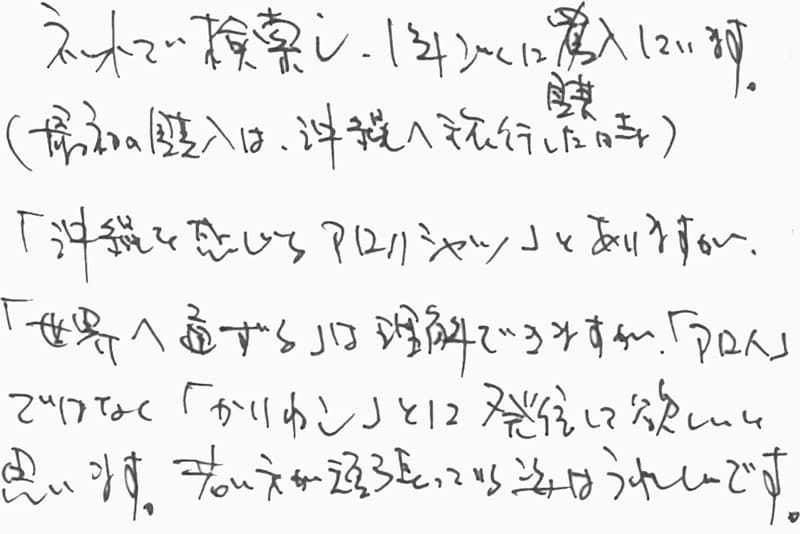 ネットで検索し、1年ごとに購入しています。
(最初の購入は、沖縄へ旅行した時)
「沖縄を感じるアロハシャツ」とありますが、
「世界へ通ずる」は理解できますが、「アロハ」
ではなく「かりゆし」として発信して欲しいと
思います。若い方が頑張っている姿はうれしいです。